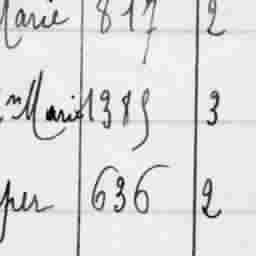 Marie 817 2
nMarie 1385 3
per 636 2